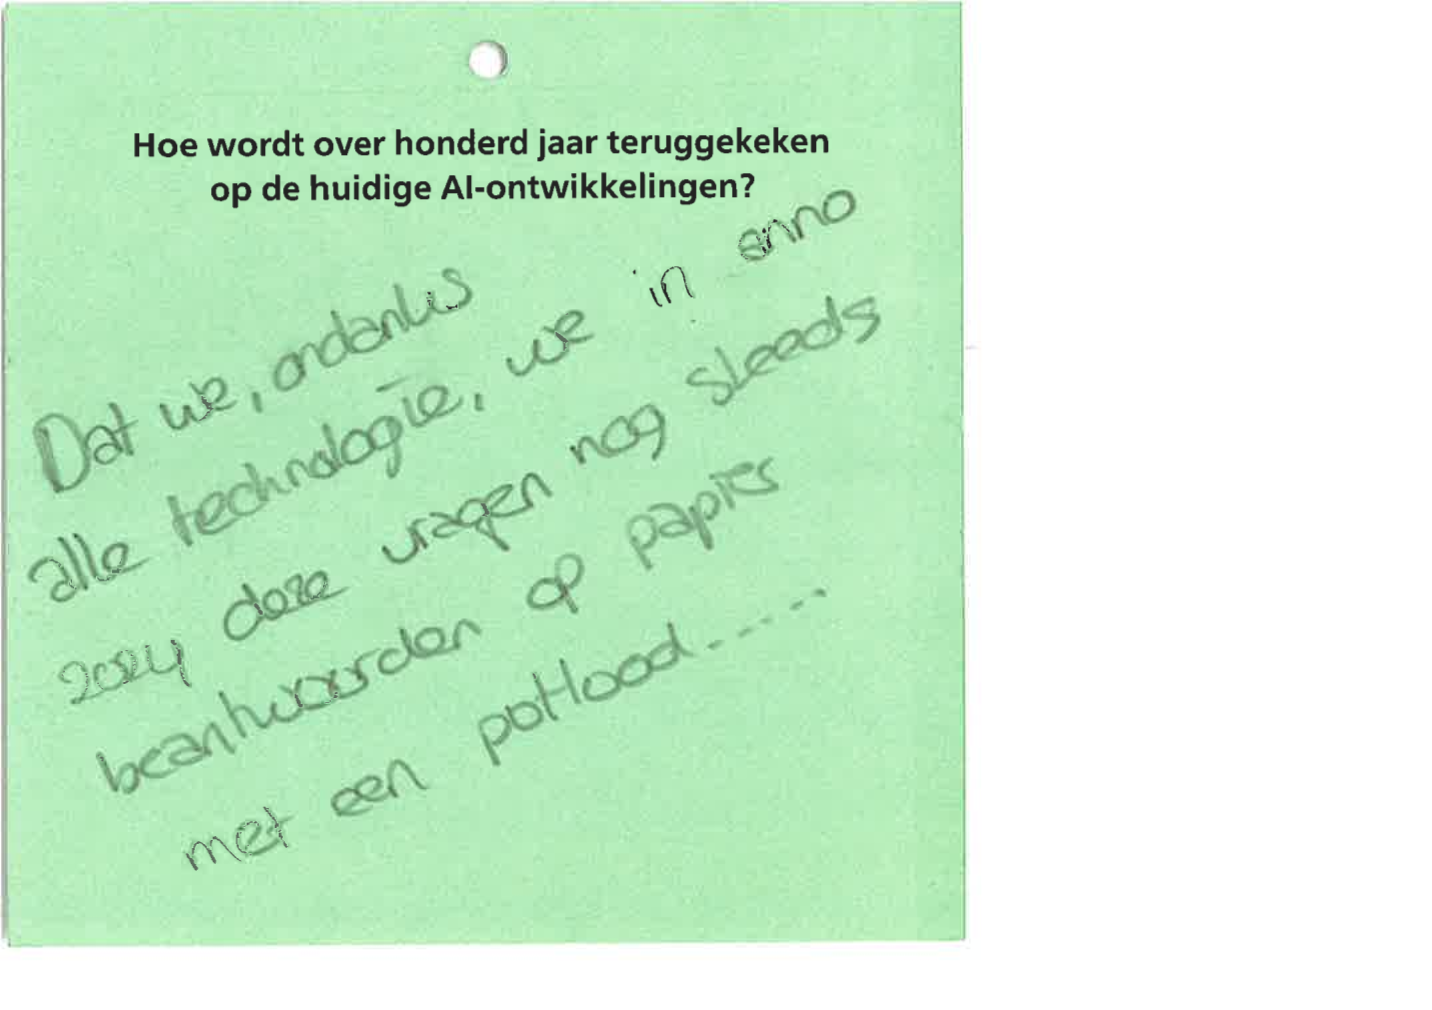 Hoe wordt over honderd jaar teruggekeken
op de huidige AI-ontwikkelingen?
Dat we, ondanks
alle technologie, we in anno
2024 deze vragen nog steeds
beantwoorden op papier
met een potlood.....